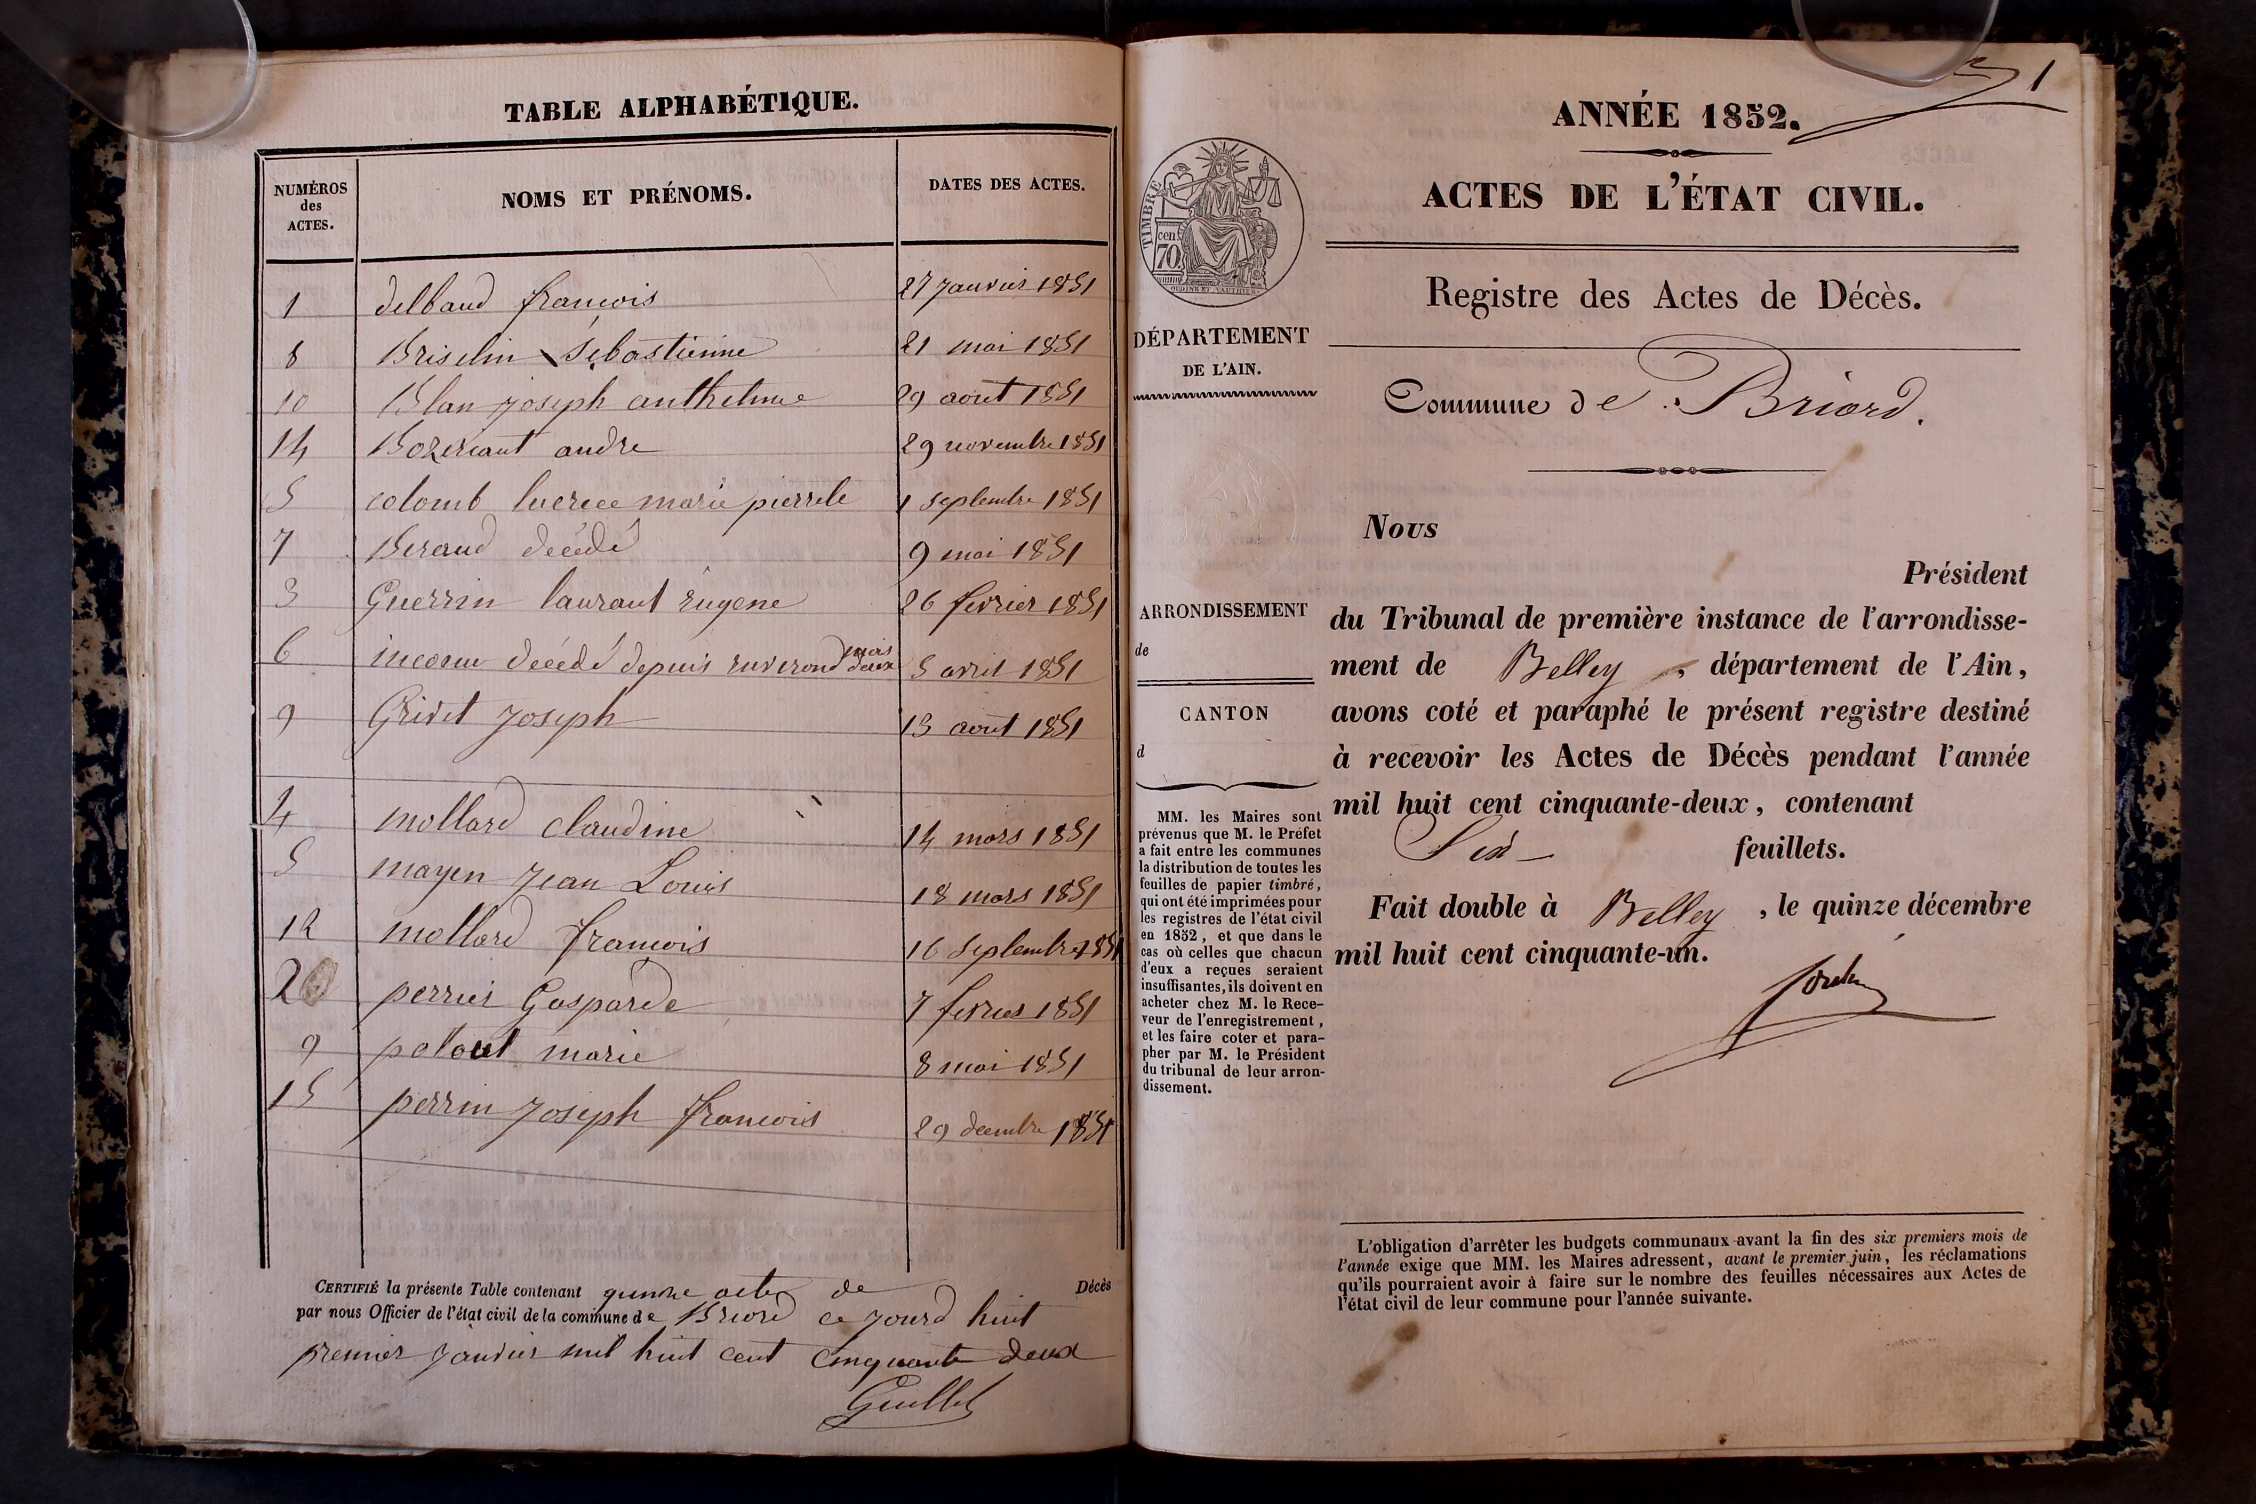 TABLE ALPHABÉTIQUE.
NUMÉROS des ACTES. NOMS ET PRÉNOMS. DATES DES ACTES.
1 delbaud françois 27 janvier 1851
8 Briselin Sébastienne 21 mai 1851
10 Blan joseph anthelme 29 aout 1851
14 Bozercant andre 29 novembre 1851
5 colomb lucrece marie pierrete 1 septembre 1851
7 Beraud décédé 9 mai 1851
3 Guerrin laurant eugene 26 fevrier 1851
6 inconu décédé depuis environd deux mois 5 avril 1851
9 Grivet joseph 13 aout 1851
4 mollard claudine 14 mars 1851
5 mayen jean Louis 18 mars 1851
12 mollard françois 16 septembre 1851
2 perrier Gasparde 7 fevrier 1851
9 marie 8 mai 1851
15 perrin joseph françois 29 decembre 1851
CERTIFIÉ la présente Table contenant quinze actes de Décès
par nous Officier de l'état civil de la commune de Briord ce jourd huit
premier janvier mil huit cent cinquante deux
Guillet
1
ANNÉE 1852.
ACTES DE L'ÉTAT CIVIL.
TIMBRE
70 cent
Registre des Actes de Décès.
DÉPARTEMENT
DE L'AIN.
Commune de Briord.
ARRONDISSEMENT
de
CANTON
d
MM. les Maires sont
prévenus que M. le Préfet
a fait entre les communes
la distribution de toutes les
feuilles de papier timbré,
qui ont été imprimées pour
les registres de l'état civil
en 1852, et que dans le
cas où celles que chacun
d'eux a reçues seraient
insuffisantes, ils doivent en
acheter chez M. le Rece-
veur de l'enregistrement,
et les faire coter et para-
pher par M. le Président
du tribunal de leur arron-
dissement.
Nous
Président
du Tribunal de première instance de l'arrondisse-
ment de Belley, département de l'Ain,
avons coté et paraphé le présent registre destiné
à recevoir les Actes de Décès pendant l'année
mil huit cent cinquante-deux, contenant
Six feuillets.
Fait double à Belley, le quinze décembre
mil huit cent cinquante-un.
L'obligation d'arrêter les budgets communaux avant la fin des six premiers mois de
l'année exige que MM. les Maires adressent, avant le premier juin, les réclamations
qu'ils pourraient avoir à faire sur le nombre des feuilles nécessaires aux Actes de
l'état civil de leur commune pour l'année suivante.